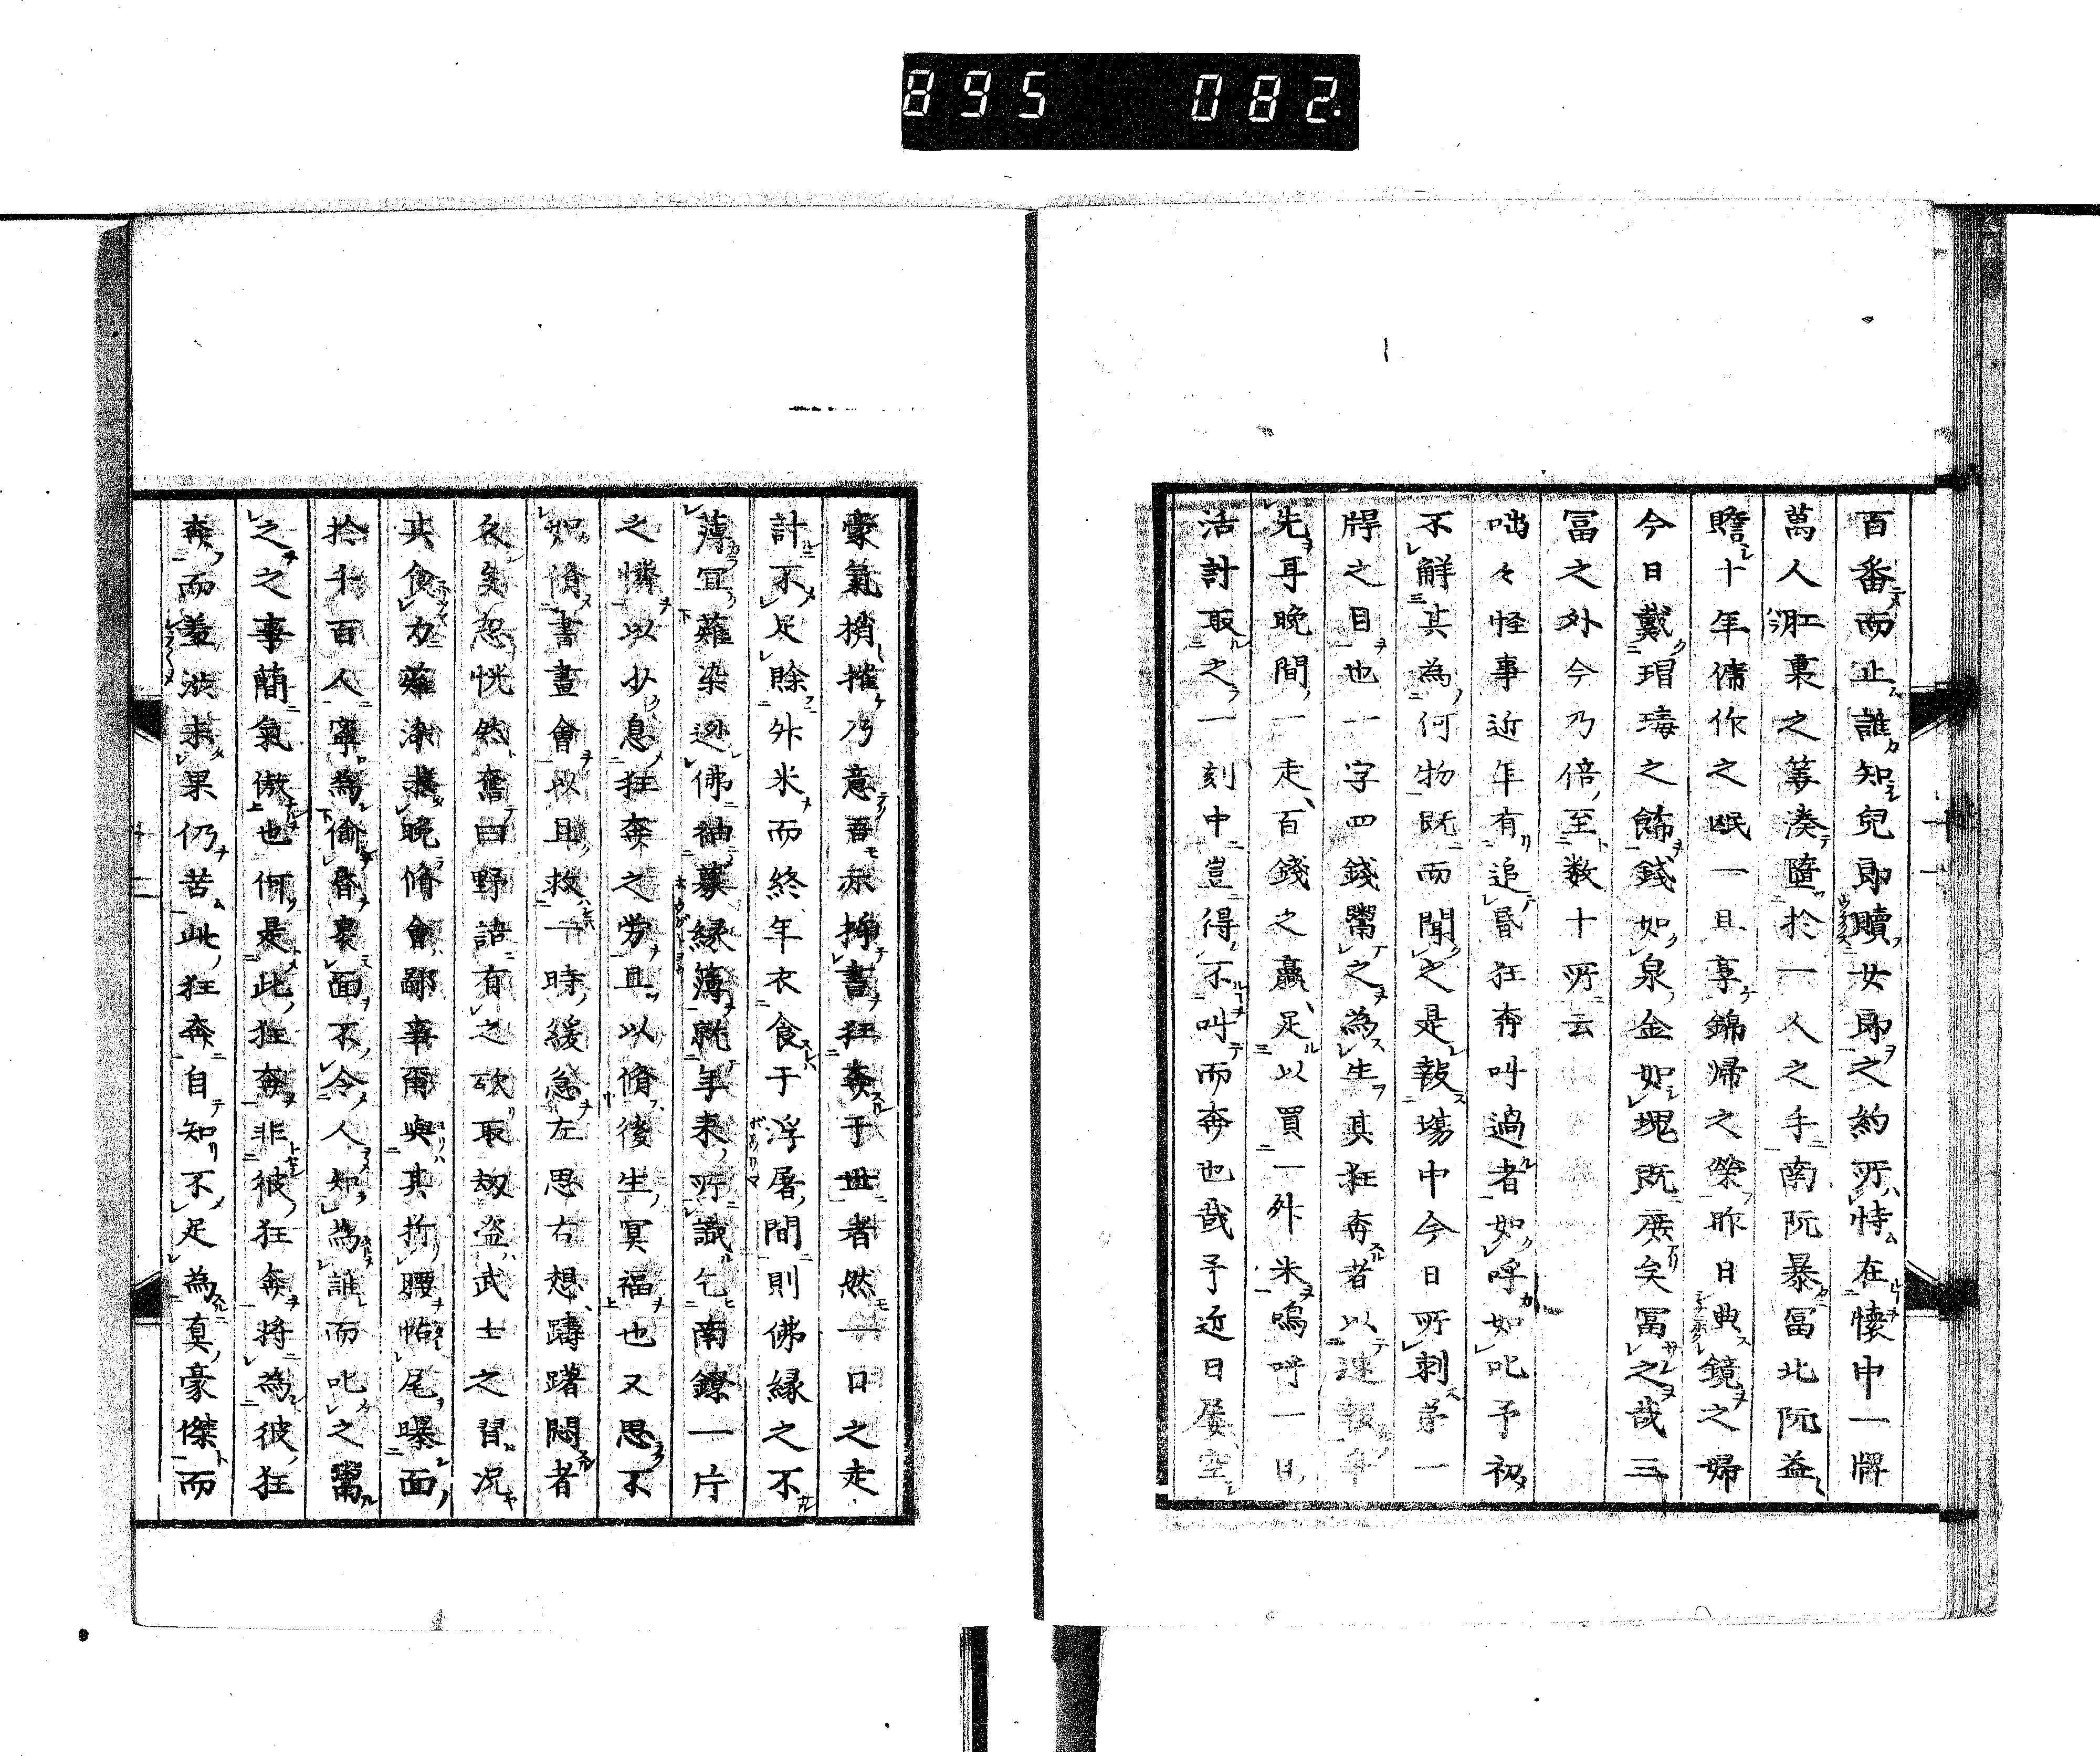 895 082
百番而止誰知兒即贖女郎之約所恃在懐中一牌
萬人肛裏之筭湊墮於一人之手南阮暴冨北阮益
贍十年傭作之眠一旦享錦帰之榮昨日典鏡之婦
今日戴瑁瑇之餙錢如泉金如塊既庶矣冨之哉三
冨之外今乃倍至数十所云
咄々怪事近年有追昏狂奔叫過者如呼如叱予初
不觧其為何物既而聞之是報塲中今日所刺苐一
牌之目也一字四錢鬻之為生其狂奔者以速報爭
先耳晩間一走百錢之贏足以買一外米嗚呼一日
活計取之一刻中豈得不叫而奔也哉予近日屡空
豪氣梢摧乃意吾亦抻書狂奔于世者然一口之走
計不足賒外米而終年衣食于浮屠間則佛縁之不
薄冝薙染逃佛袖募縁薄就年来所識乞南鐐一片
之憐以少息狂奔之労且以脩後生冥福也又思不
如脩書畫會以且救一時緩急左思右想躊躇悶者
久矣忽恍然奮曰野諺有之欲取劫盗武士之習况
其食力薙染業晩脩會鄙事甭與其折腰怗尾曝面
於千百人寧為偷昏裹面不令人知為誰而叱之鬻
之之事蕑氣傲也何是此狂奔非彼狂奔将為彼狂
奔而羞澁未果仍苦此狂奔自知不足為真豪傑而